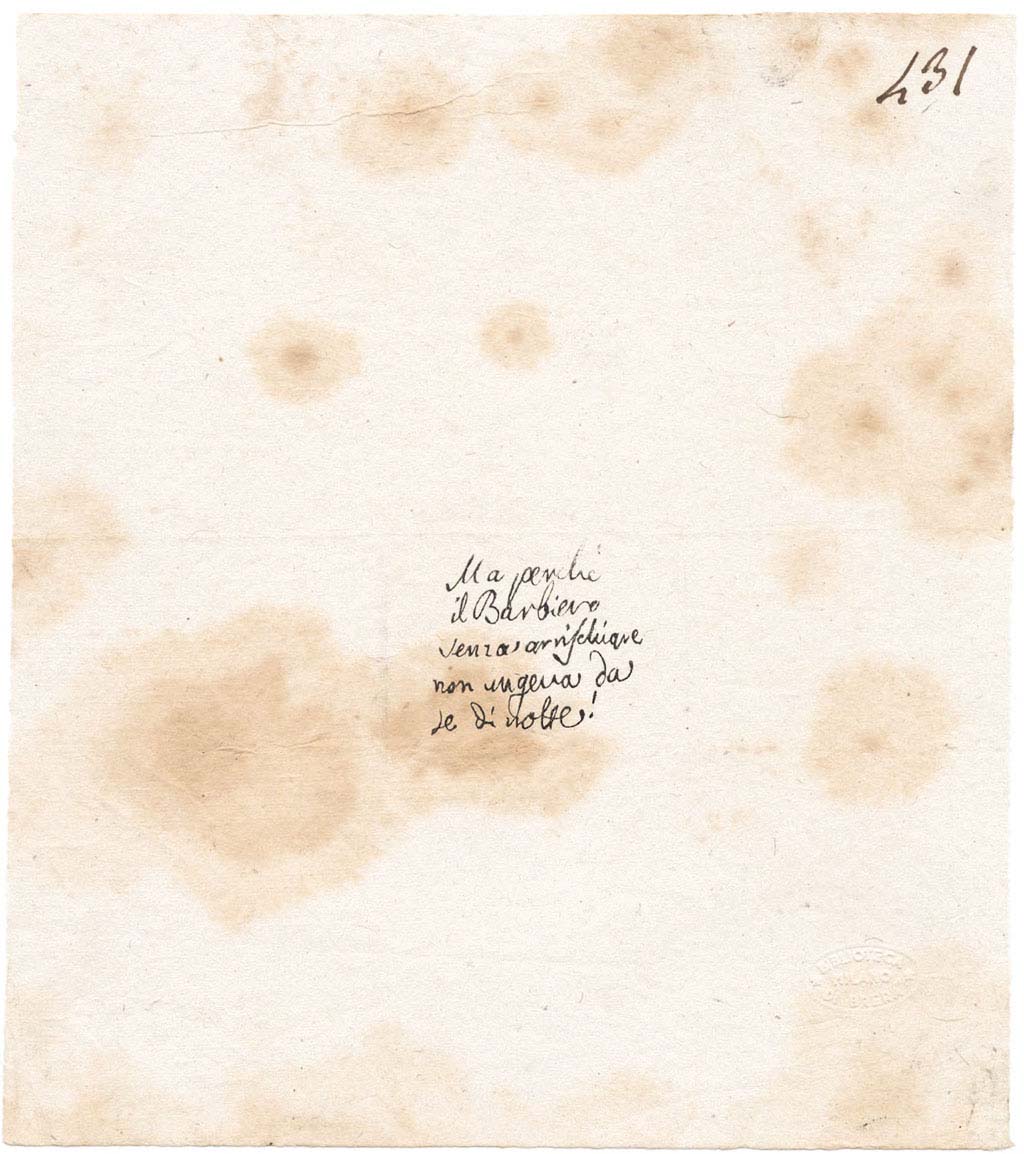 431
Ma perché
il Barbiero
senza arrischiare
non ungeva da
se di notte!
BIBLIOTECA
MILANO